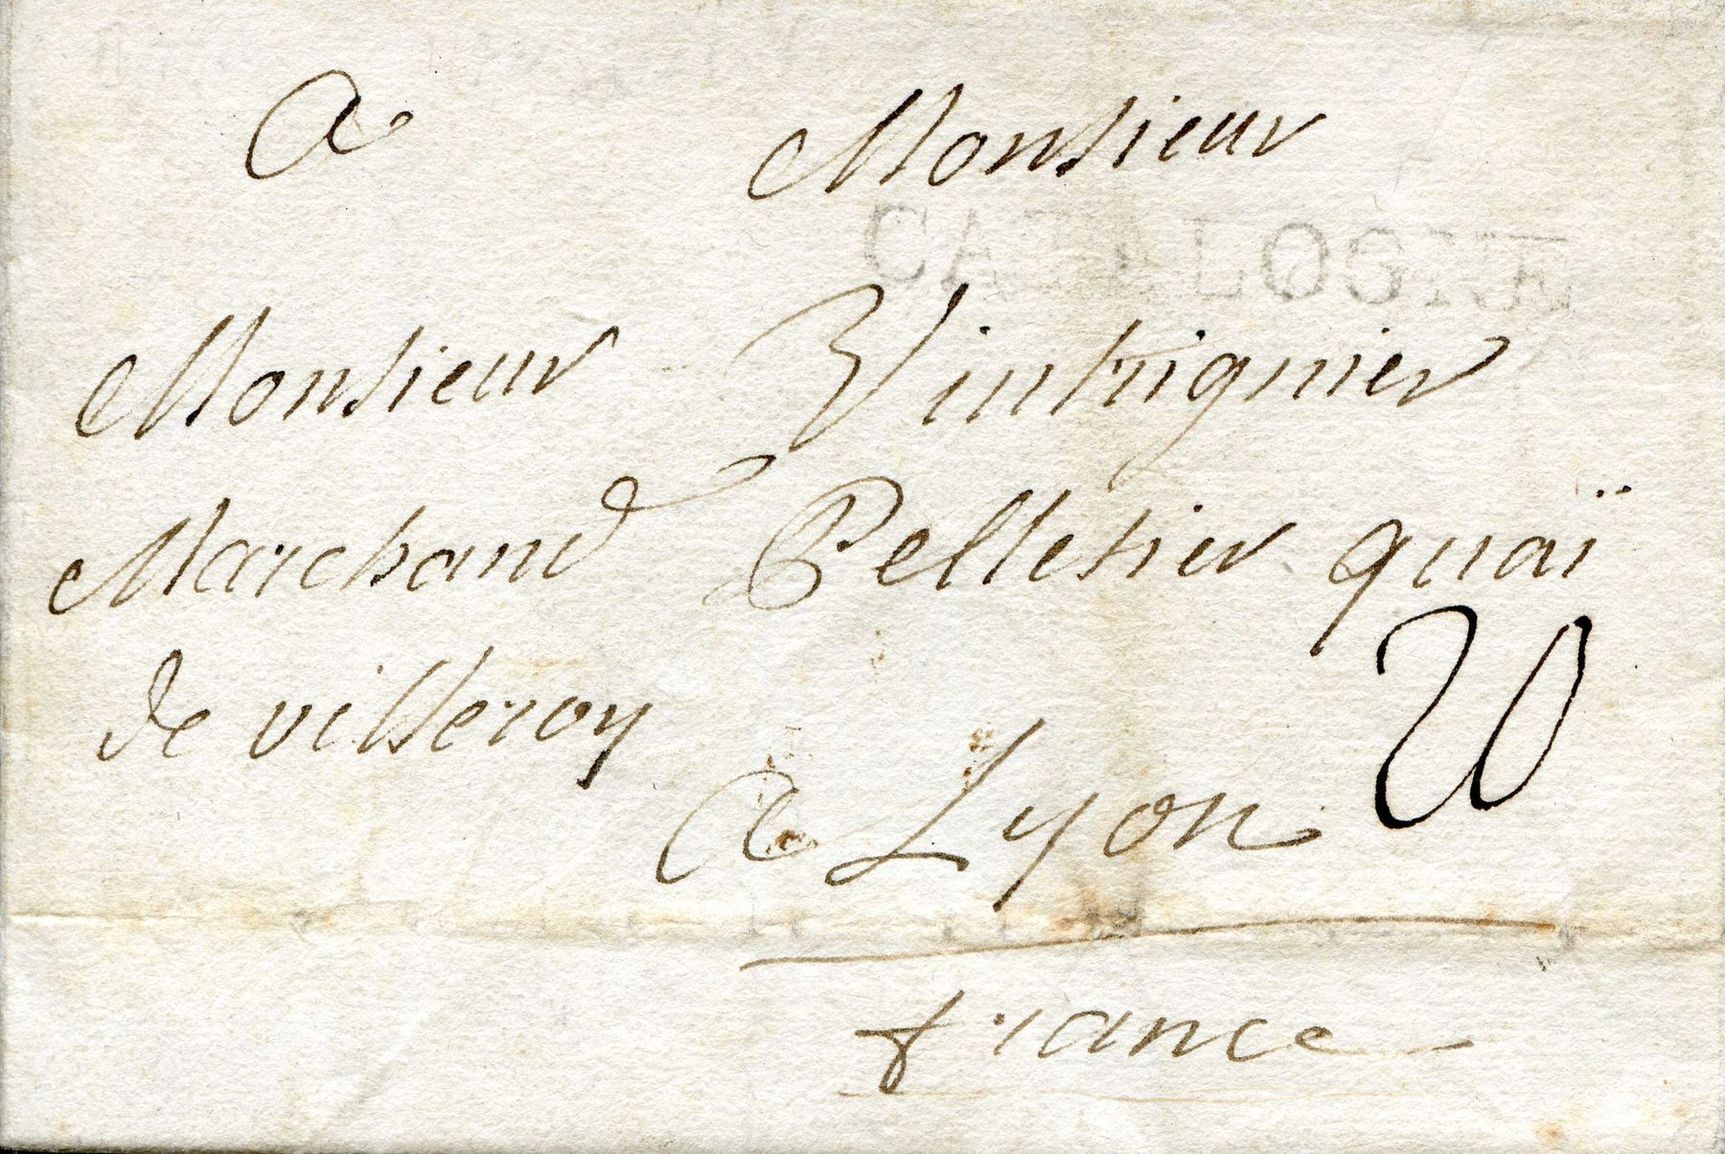 A Monsieur
CATALOGNE
Monsieur Vintrignier
Marchand Pelletier quaï
de villeroy
20
A Lyon
france